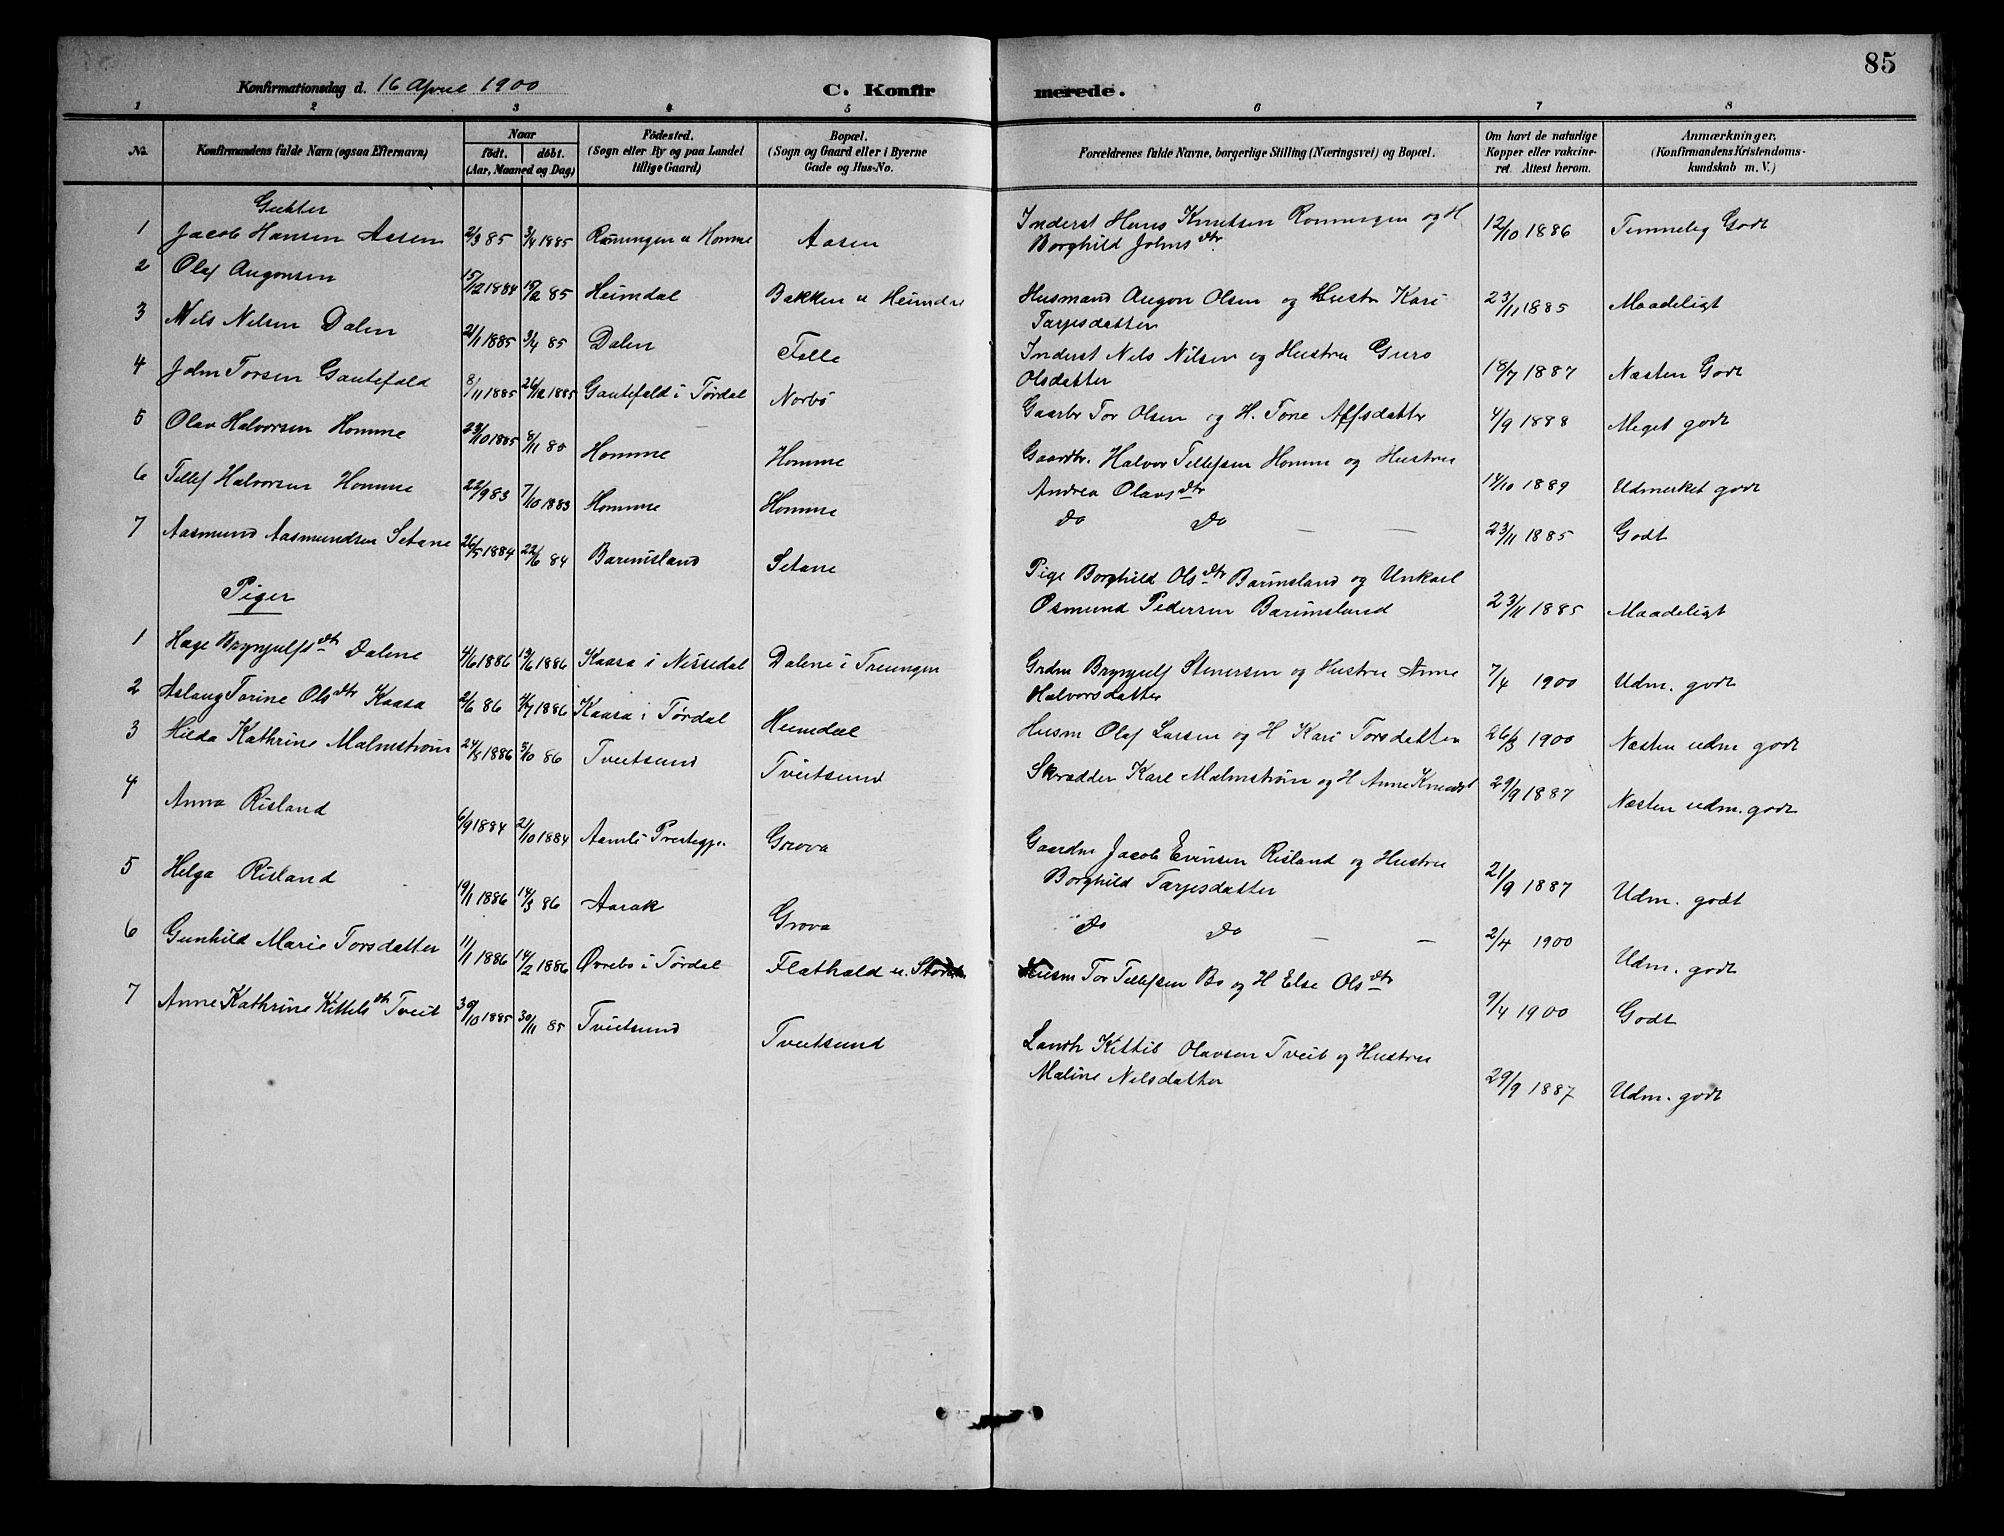 85
Konfirmationsdag d. 16 April 1900
C. Konfirmerede.
1 2 3 4 5 6 7 8
No. Konfirmandens fulde Navn (ogsaa Efternavn) Naar födt. döbt. (Aar, Maaned og Dag) Födested. (Sogn eller By og paa Landet tillige Gaard) Bopæl. (Sogn og Gaard eller i Byerne Gade og Hus-No. Forældrenes fulde Navne, borgerlige Stilling (Næringsvei) og Bopæl. Om havt de naturlige Kopper eller vakcineret. Attest herom. Anmærkninger. (Konfirmandens Kristendomskundskab m. V.)
Gutter
1 Jacob Hansen Aasen 2/3 85 3/4 1885 Rønningen u Homme Aasen Inderst Hans Knutsen Rønningen og H Borghild Johnsdtr 12/10 1886 Temmelig Godt
2 Olaf Augonsen 15/12 1884 15/2 85 Heimdal Bakken u Heimdal Husmand Augon Olsen og Hustr Kari Tarjesdatter 23/11 1885 Maadeligt
3 Nels Nelsen Dalen 2/1 1885 3/4 85 Dalen Felle Inderst Nels Nilsen og Hustru Guro Olsdatter 18/7 1887 Næsten Godt
4 John Torsen Gautefald 8/11 1885 26/12 1885 Gautefald i Tørdal Norbö Gaarbr Tor Olsen og H. Tone Affsdatter 4/9 1888 Meget godt
5 Olav Halvorsen Homme 23/10 1885 8/11 85 Homme Homme Gaardbr. Halvor Tellefsen Homme og Hustru Andrea Olavsdtr 14/10 1889 Udmerket godt
6 Tellef Halvorsen Homme 22/9 83 7/10 1883 Homme Homme Do Do — — 23/11 1885 Godt
7 Aasmund Aasmundsen Setane 26/5 1884 22/6 84 Barunsland Setane Pige Borghild Olsdtr Barunsland og Unkarl Osmund Pedersen Barunsland 23/11 1885 Maadeligt
Piger
1 Hæge Brynjulfsdtr Dalene 4/6 1886 13/6 1886 Kaasa i Nissedal Dalene i Treungen Grdm Brynjulf Stenersen og Hustru Anne Halvorsdatter 7/4 1900 Udm. godt
2 Aslaug Torine Olsdtr Kaasa 2/6 86 4/7 1886 Kaasa i Tørdal Heimdal Husm Olaf Larsen og H Kari Torsdatter 26/3 1900 Næsten udm. godt
3 Hilda Kathrine Malmstrøm 24/8 1886 3/10 86 Tveitsund Tveitsund Skrædder Karl Malmstrøm og H Anne Knudst 29/9 1887 Næsten udm. godt
4 Anna Risland 6/9 1884 2/10 1884 Aamli Prestegj. Grova Gaardm Jacob Evinsen Risland og Hustru Borghild Tarjesdatter 21/9 1887 Udm. godt
5 Helga Risland 19/1 1886 14/3 86 Aarak Grova Do Do — — 2/4 1900 Udm. godt
6 Gunhild Marie Torsdatter 11/1 1886 14/2 1886 Øvrebø i Tørdal Flathald u. Husm Tor Tellefsen Bo og H Else Olsdtr 9/4 1900 Godt
7 Anne Kathrine Kittelsdtr Tveit 30/10 1885 30/11 85 Tveitsund Tveitsund Landh Kittil Olavsen Tveit og Hustru Maline Nelsdatter 29/9 1887 Udm. godt